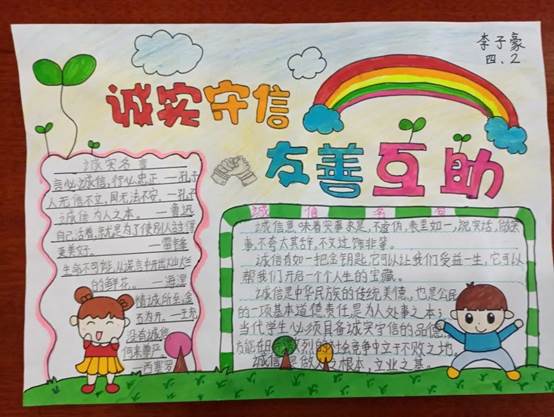 李子豪
四.2
诚实守信
友善互助
诚实名言
言必诚信,行必忠正 — 孔子
人无信不立,国无法不安. — 孔子
诚信为人之本. — 鲁迅
自己活着,就是为了使别人过得
更美好. — 雷锋
生命不可能从谎言中开出灿烂
的鲜花。 — 海涅
精诚所至,金
石为开。— 王充
没有诚信,
何来尊严
— 西塞罗
诚信名言
诚信意味着实事求是,不虚伪,表里如一,说实话,做实
事,不夸大其辞,不文过饰非等。
诚信有如一把金钥匙,它可以让我们受益一生,它可以
帮我们开启一个个人生的宝藏。
诚信是中华民族的传统美德,也是公民
的一项基本道德责任,是为人处事之本,
当代学生必须具备诚实守信的品德,
方能在日 烈的社会竞争中立于不败之地,
诚信是做 之根本,立业之基.